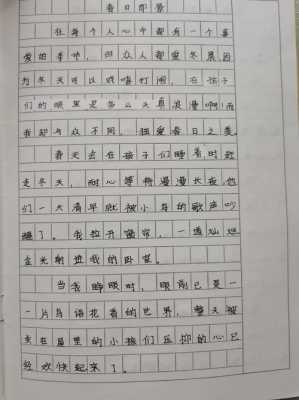 春日即景
在每个人心中都有一个喜
爱的季节，但众人都爱冬晨因
为冬天可以嬉嬉打闹，在孩子
们的眼里是多么天真浪漫啊！而
我却与众不同，独爱春日之美。
春天会在孩子们睡着时赶
走冬天，耐心等待漫漫长夜，他
们一大清早就被小鸟的歌声吵
醒了。我拉开窗帘，一道灿烂
金光射进我的卧室。
当我睁眼时，眼前已是一
一片鸟语花香的世界，整天被
关在屋里的小孩们压抑的心已
经欢快起来了。